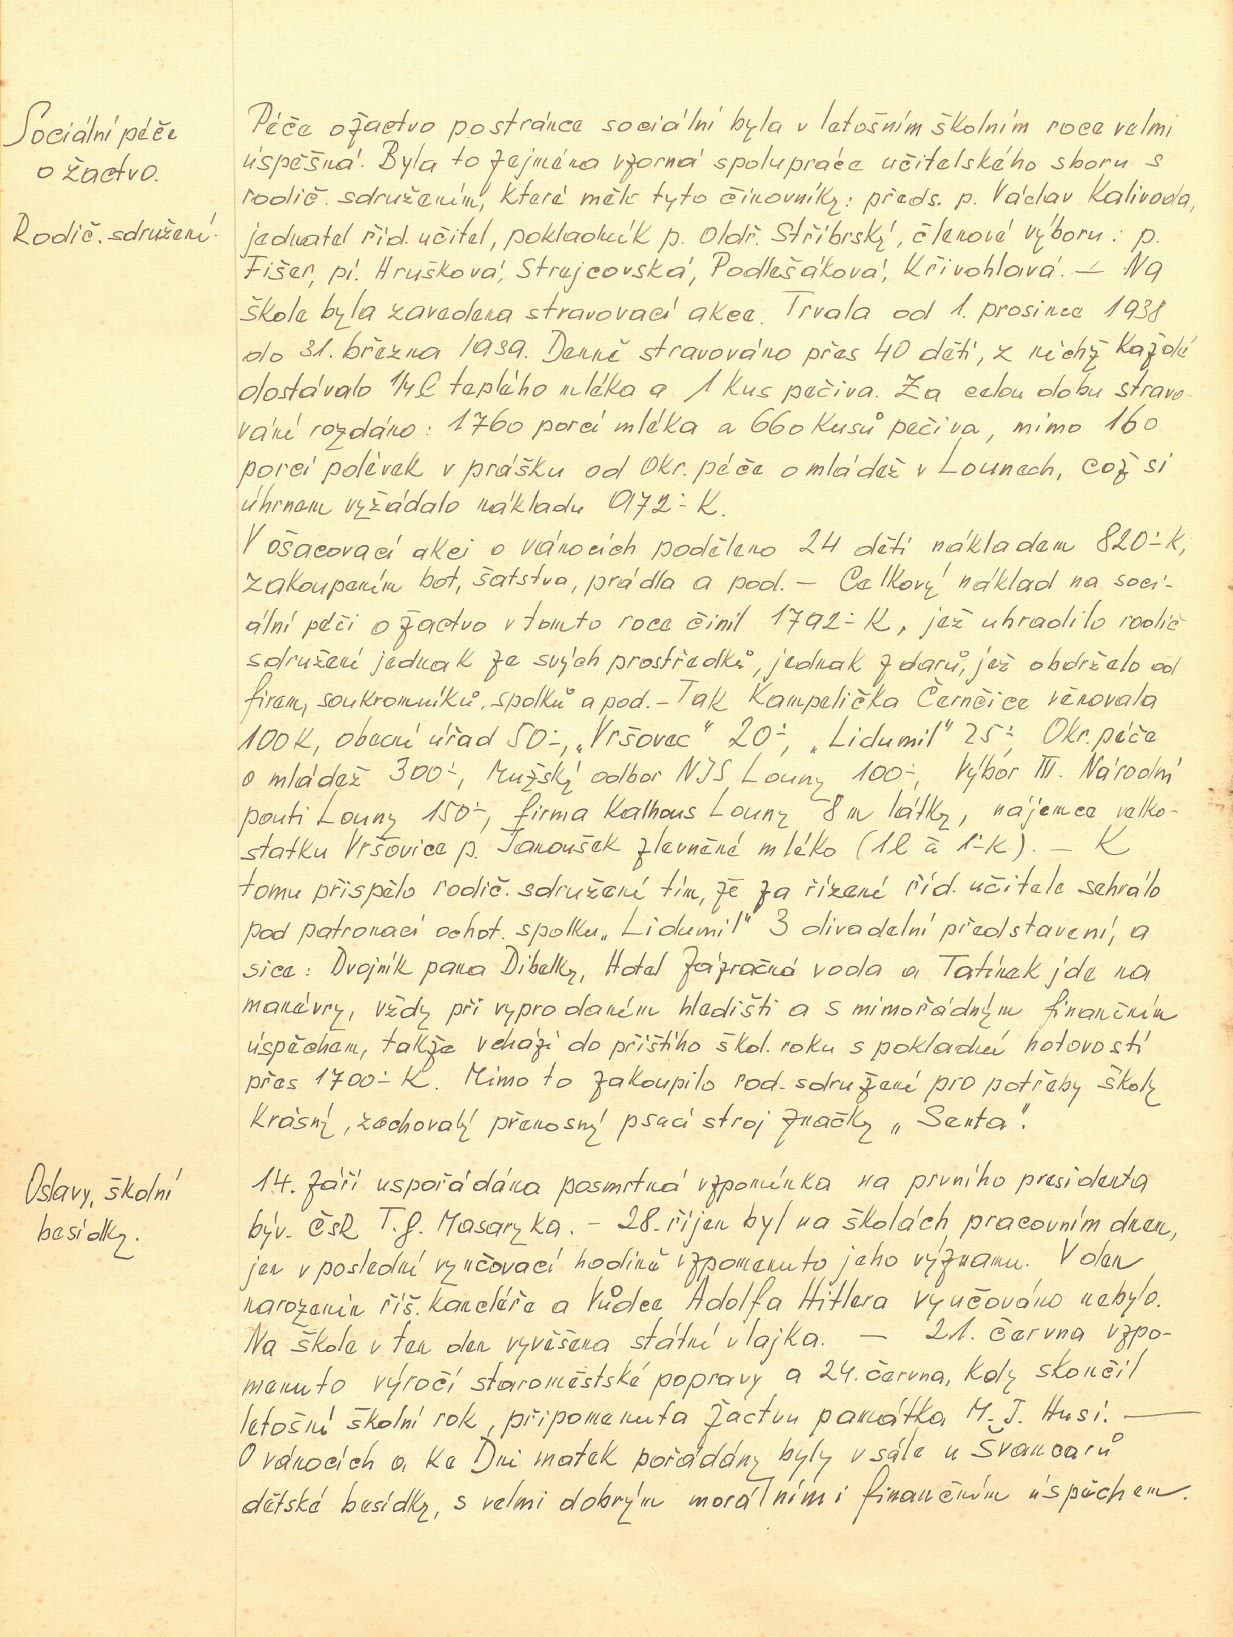 Sociální péče
o žactvo.
Rodič. sdružení.
Péče o žactvo po stránce sociální byla v letošním školním roce velmi
úspěšná. Byla to zejména vzorná spolupráce učitelského sboru s
rodič. sdružením, které mělo tyto činovníky: předs. p. Václav Kalivoda,
jednatel říd. učitel, pokladník p. Oldř. Stříbrský, členové výboru: p.
Fišer, pí. Hrušková, Strejcovská, Podlešáková, Křivohlavá. — Na
škole byla zavedena stravovací akce. Trvala od 1. prosince 1938
do 31. března 1939. Denně stravováno přes 40 dětí, z nichž každé
dostávalo 1/4 l teplého mléka a 1 kus pečiva. Za celou dobu stravo-
vání rozdáno: 1760 porcí mléka a 660 kusů pečiva, mimo 160
porcí polévek v prášku od Okr. péče o mládež v Lounech, což si
úhrnem vyžádalo nákladu 972·- K.
V ošacovací akci o vánocích poděleno 24 dětí nákladem 820·- K,
zakoupením bot, šatstva, prádla a pod. — Celkový náklad na soci-
ální péči o žactvo v tomto roce činil 1792·- K, jež uhradilo rodič
sdružení jednak ze svých prostředků, jednak z darů, jež obdrželo od
firem, soukromníků, spolků a pod. - Tak Kampelička Černčice věnovala
100 K, obecní úřad 50·-, „Vršovec" 20·-, „Lidumil" 25·-, Okr. péče
o mládež 300·-, Mužský odbor NJS Louny 100·-, Výbor III. Národní
pouti Louny 150·-, firma Kalhous Louny 8 m látky, nájemce velko-
statku Vršovice p. Janoušek zlevněné mléko (1 l à 1·- K). — K
tomu přispělo rodič. sdružení tím, že za řízení říd. učitele sehrálo
pod patronací ochot. spolku „Lidumil" 3 divadelní představení, a
sice: Dvojník pana Dibelky, Hotel Zázračná voda a Tatínek jde na
manévry, vždy při vyprodaném hledišti a s mimořádným finančním
úspěchem, takže vchází do příštího škol. roku s pokladní hotovostí
přes 1700·- K. Mimo to zakoupilo rod. sdružení pro potřeby školy
krásný, zachovalý přenosný psací stroj značky „Senta".
Oslavy, školní
besídky.
14. září uspořádána posmrtná vzpomínka na prvního presidenta
býv. ČSR T. G. Masaryka. - 28. říjen byl na školách pracovním dnem,
jen v poslední vyučovací hodině vzpomenuto jeho významu. V den
narozenin říš. kancléře a Vůdce Adolfa Hitlera vyučováno nebylo.
Na škole v ten den vyvěšena státní vlajka. — 21. června vzpo-
menuto výročí staroměstské popravy a 24. června, kdy skončil
letošní školní rok, připomenuta žactvu památka M. J. Husi. —
O vánocích a ke Dni matek pořádány byly v sále u Švancarů
dětské besídky, s velmi dobrým morálním i finančním úspěchem.